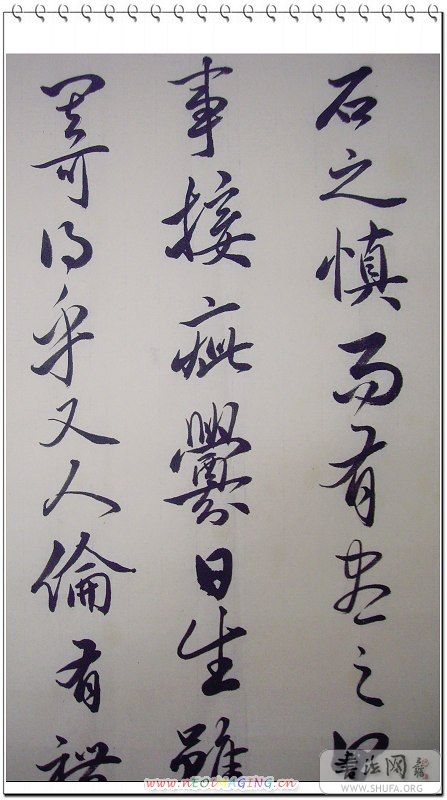 石之慎而有盡之
事接疵釁日生雖
其可得乎又人倫有禮
www.nEOiMAGING.cn
书法网
WWW.SHUFA.ORG